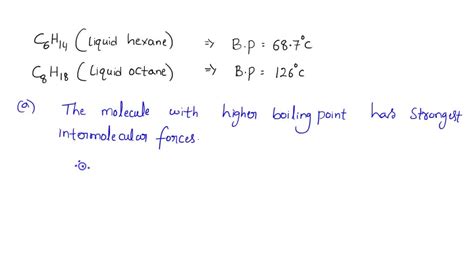 C₆H₁₄ (liquid hexane) ⇒ B.P = 68.7°C
C₈H₁₈ (liquid octane) ⇒ B.P = 126°C
(a) The molecule with higher boiling point has strongest
intermolecular forces.
∴